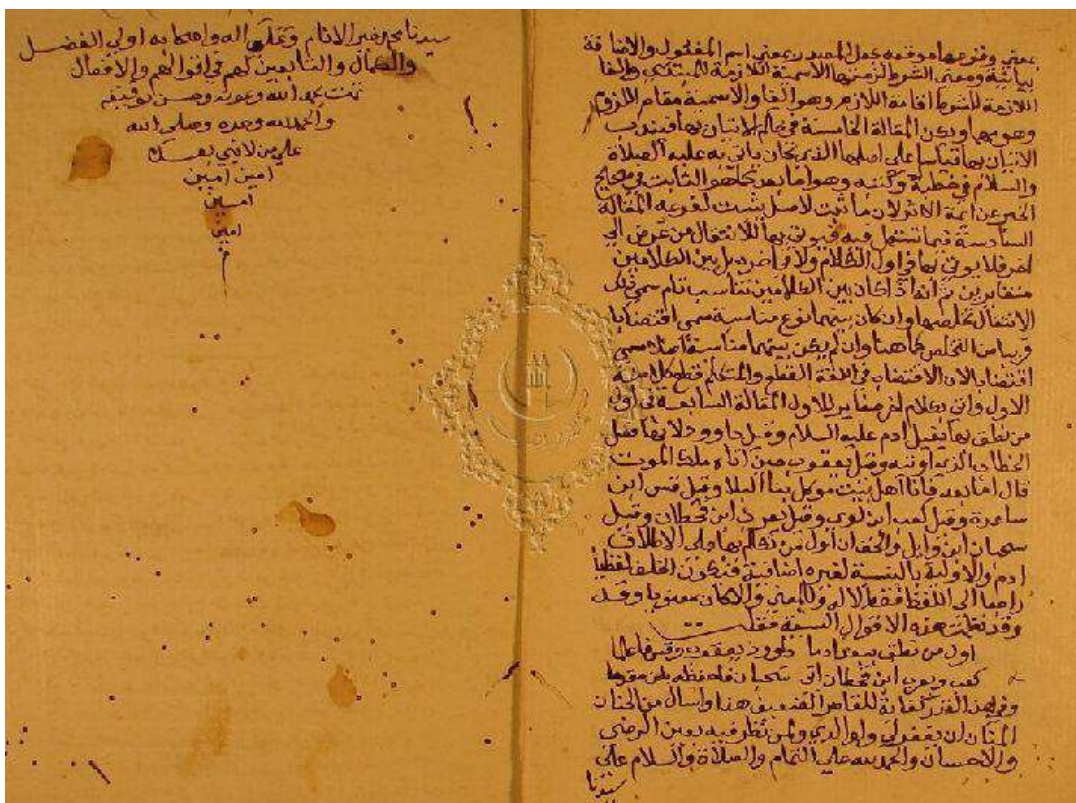 بمعني وقوعها موقعه عمل المصدر بمعني اسم المفعول والاضافة
بيانية ومعني الشرط لزمتها الاسمية اللازمة للمبتدي والفا
اللازمة للشرط اقامة اللازم وهو الفا والاسمية مقام الملزوم
وهو مهما ويكن المقالة الخامسة في حالم الاتيان بها فيندب
الاتيان بها قياسا علي اصلها الذي كان ياتي به عليه الصلاة
والسلام في خطبه وكتبه وهو اما بعد كما هو الثابت في صحيح
الخبر عن ايمة الاثر لان ما ثبت لاصل يثبت لفرعه المقالة
السادسة فيما تستعمل فيه فيوتي بها للانتقال من غرض الي
اخر فلا يوتي بها في اول الكلام ولا في اخره بل بين الكلامين
متغايرين ثم انه اذا كان بين الكلامين تناسب تام سمي ذلك
الانتقال تخلصا وان كان بينهما نوع مناسبة سمي اقتضابا
قريبا من التخلص كما هنا وان لم يكن بينهما مناسبة اصلا سمي
اقتضابا لان الاقتضاب في اللغة القطع والمتكلم قطع كلامه
الاول واتي بكلام اخر مغاير للاول المقالة السابعة في اول
من نطق بها فقيل ادم عليه السلام وقيل داوود لانها فصل
الخطاب الذي اوتيه وقيل يعقوب حين اتاه ملك الموت
قال اما بعد فانا اهل بيت موكل بنا البلا وقيل قس ابن
ساعدة وقيل كعب ابن لوي وقيل يعرب ابن قحطان وقيل
سحبان ابن وايل والحق ان اول من تكلم بها علي الاطلاق
ادم والاولية بالنسبة لغيره اضافية فيكون الخلف لفظيا
راجعا الي اللفظ فقط لا له وللمعني والا كان معنويا وقد
وقد نظمت هذه الاقوال السبعة فقلت
اول من نطق ببعد ادما داوود يعقوب وقس فاعلما
كعب ويعرب ابن قحطان اتي سحبان
وفي هذا القدر كفاية للقاصر الضعيف هذا واسال من الحنان
المنان ان يغفر لي ولوالدي ولمن نظر فيه بعين الرضي
والاحسان والحمد لله علي التمام والصلاة والسلام علي
سيدنا
سيدنا محمد خير الانام وعلي اله واصحابه اولي الفضل
والكمال والتابعين لهم في اقوالهم والافعال
تمت بحمد الله وعونه وحسن توفيقه
والحمد لله وحده وصلي الله
علي من لا نبي بعده
امين امين
امين
امين
م